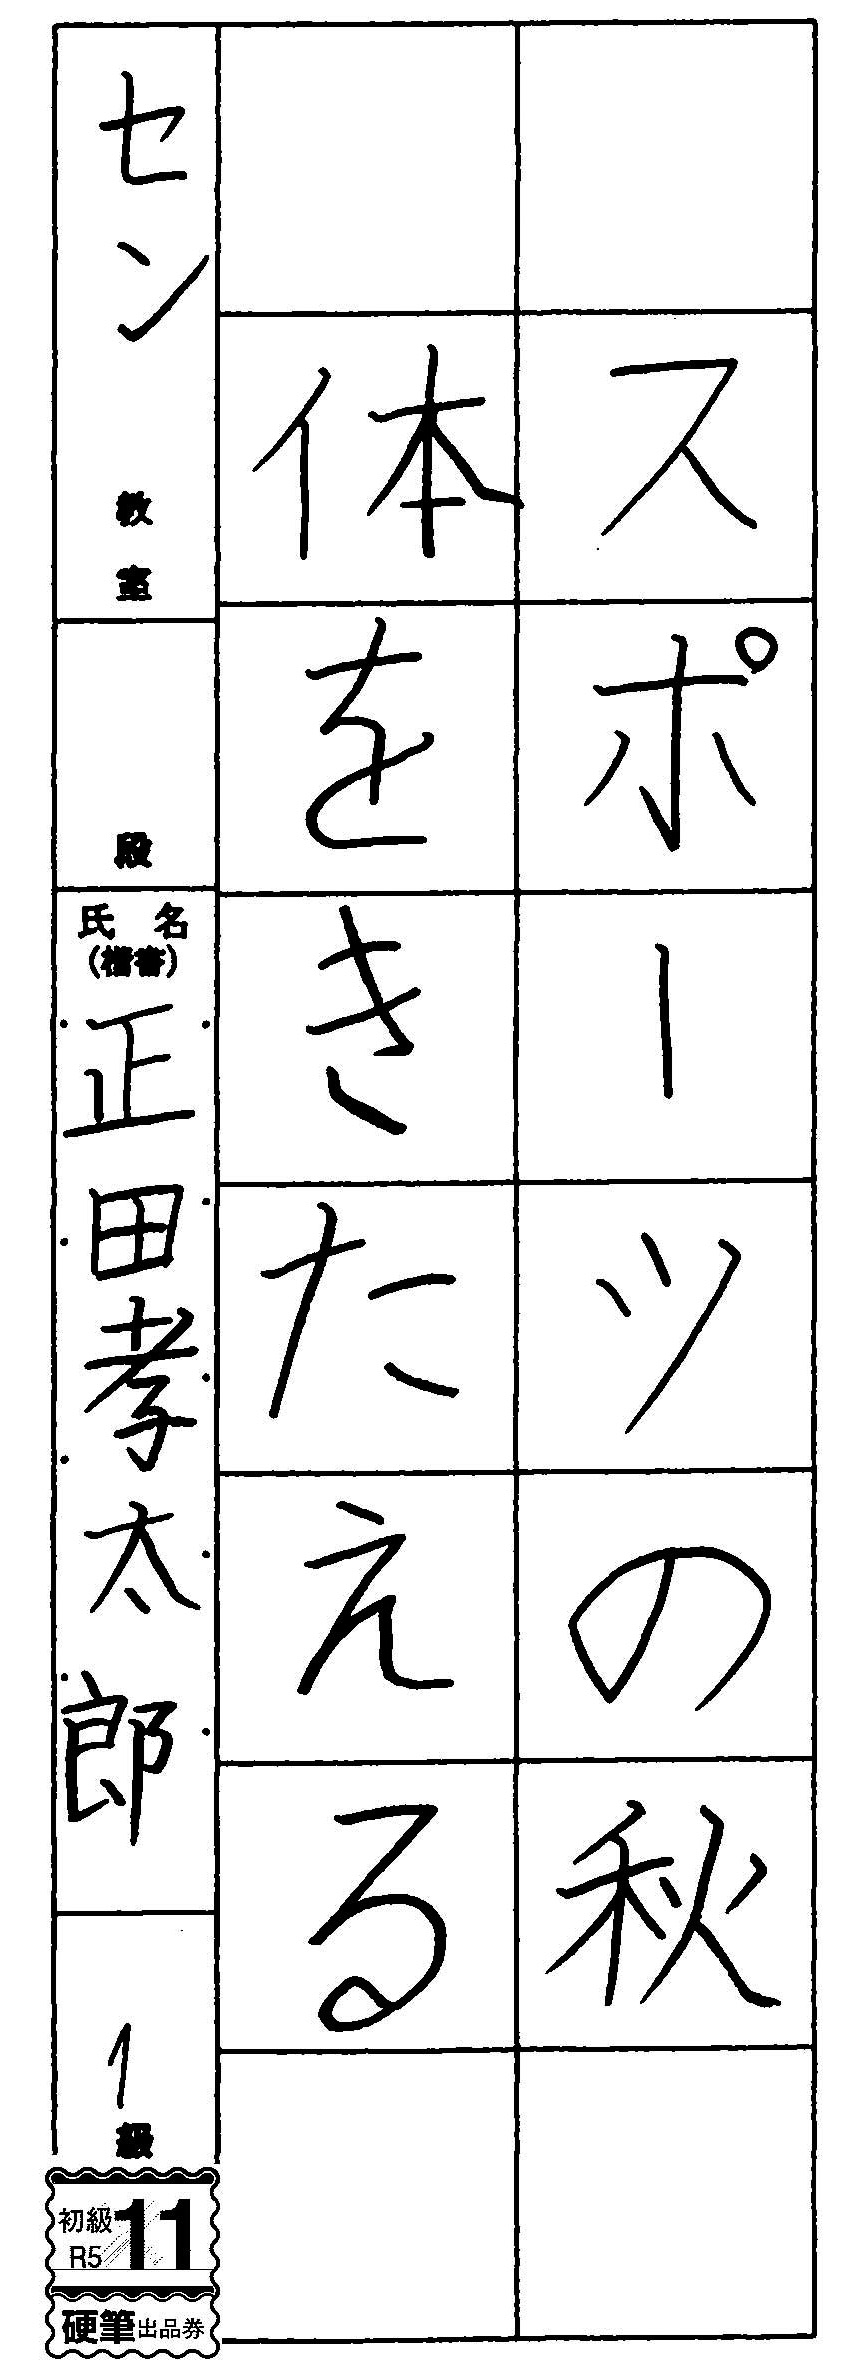 スポーツの秋
体をきたえる
セン教室
段
氏名
(楷書)
正田孝太郎
1級
初級
R5
11
硬筆出品券